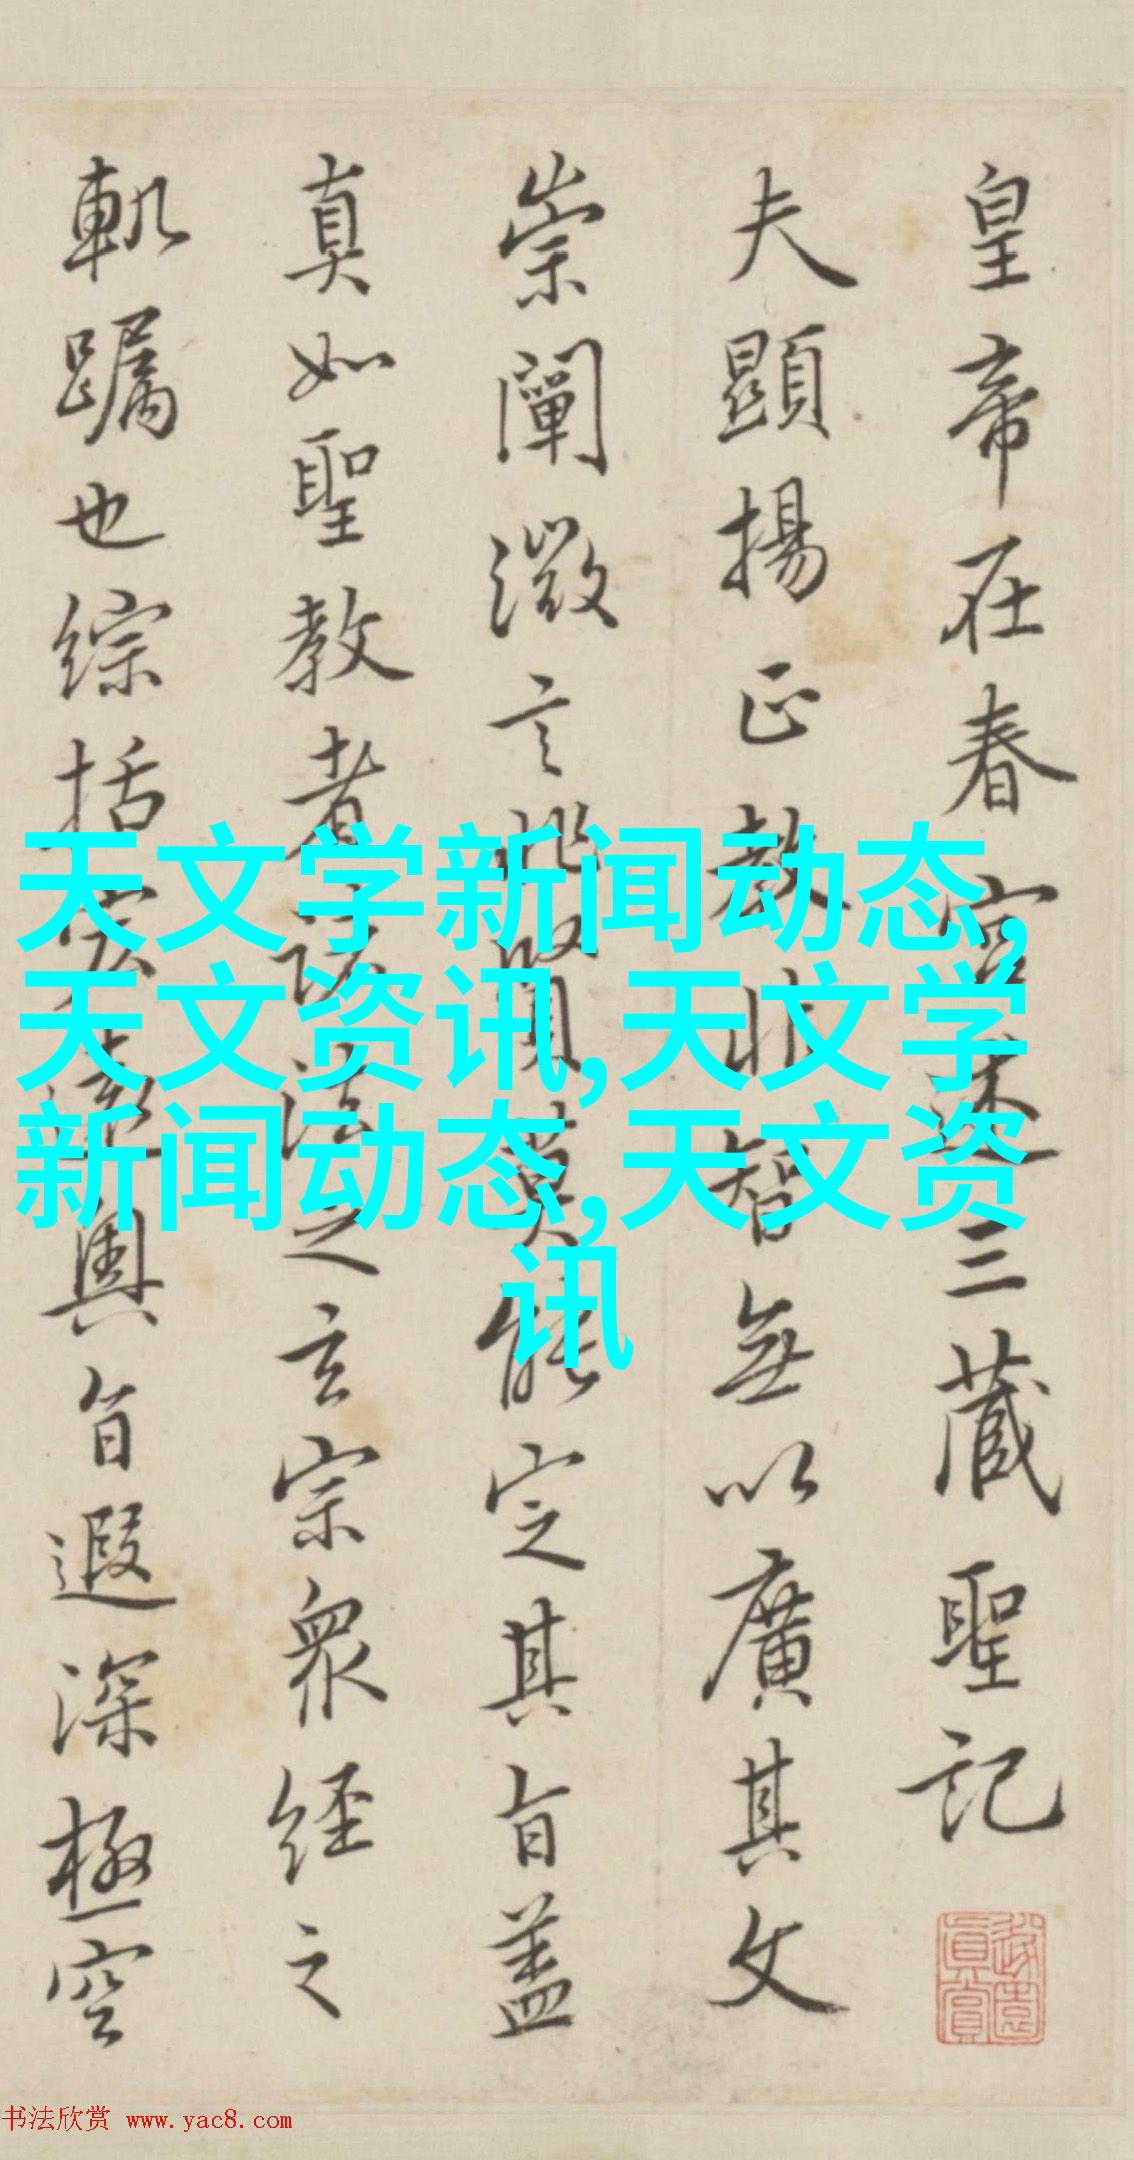 皇帝在春宮述三藏聖記
夫顯揚正教非智無以廣其文
崇闡微言非賢莫能定其旨蓋
真如聖教者諸法之玄宗衆經之
軌躅也綜括宏遠奧旨遐深極空
天文学新闻动态,
天文资讯,天文学
新闻动态,天文资
讯
书法欣赏 www.yac8.com